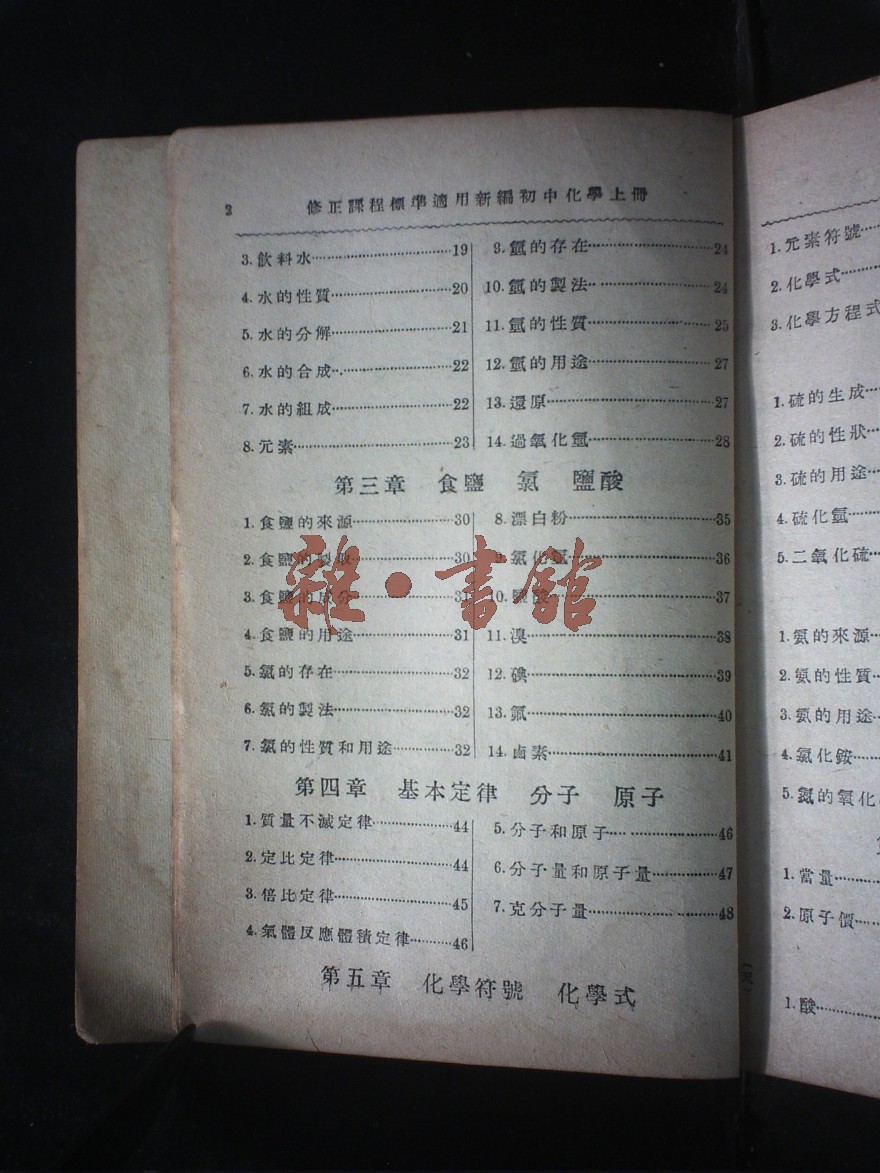 2
修正課程標準適用新編初中化學上冊
3.飲料水……19
4.水的性質……20
5.水的分解……21
6.水的合成……22
7.水的組成……22
8.元素……23
9.氫的存在……24
10.氫的製法……24
11.氫的性質……25
12.氫的用途……27
13.還原……27
14.過氧化氫……28
第三章 食鹽 氯 鹽酸
1.食鹽的來源……30
2.食鹽的製取……30
3.食鹽的成分……31
4.食鹽的用途……31
5.氯的存在……32
6.氯的製法……32
7.氯的性質和用途……32
8.漂白粉……35
9.氯化氫……36
10.鹽酸……37
11.溴……38
12.碘……39
13.氟……40
14.鹵素……41
第四章 基本定律 分子 原子
1.質量不滅定律……44
2.定比定律……44
3.倍比定律……45
4.氣體反應體積定律……46
5.分子和原子……46
6.分子量和原子量……47
7.克分子量……48
第五章 化學符號 化學式
雜·書館
1.元素符號……
2.化學式……
3.化學方程式
1.硫的生成……
2.硫的性狀……
3.硫的用途……
4.硫化氫……
5.二氧化硫……
1.氨的來源……
2.氨的性質……
3.氨的用途……
4.氯化銨……
5.氮的氧化
1.當量……
2.原子價……
1.酸……